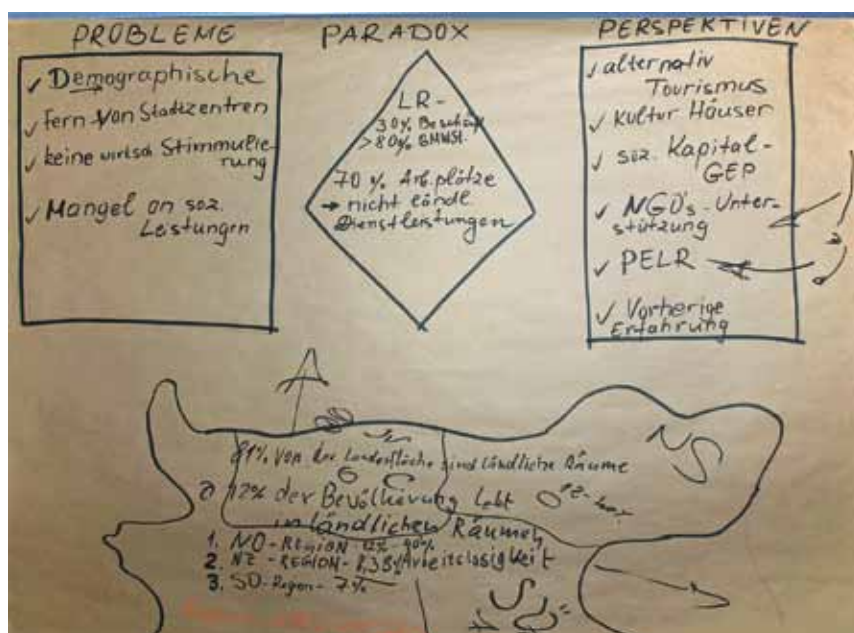 PROBLEME
✓ Demographische
✓ fern von Stadtzentren
✓ keine wirtsch Stimmulie-
rung
✓ Mangel an soz.
Leistungen
PARADOX
LR-
30% Beschäf
>80%
70 % Arb.plätze
→ nicht ländl
Dienstleistungen
PERSPEKTIVEN
✓ alternativ
Tourismus
✓ Kultur Häuser
✓ soz. Kapital-
GEP
✓ NGO's-Unter-
stützung
✓ PELR
✓ Vorherige
Erfahrung
81% von der Landesfläche sind ländliche Räume
12% der Bevölkerung lebt
in ländlichen Räumen
1. NO-REGION 12%
2. NZ-REGION- 8,38% Arbeitslosigkeit
3. SO-Region- 7%
NS